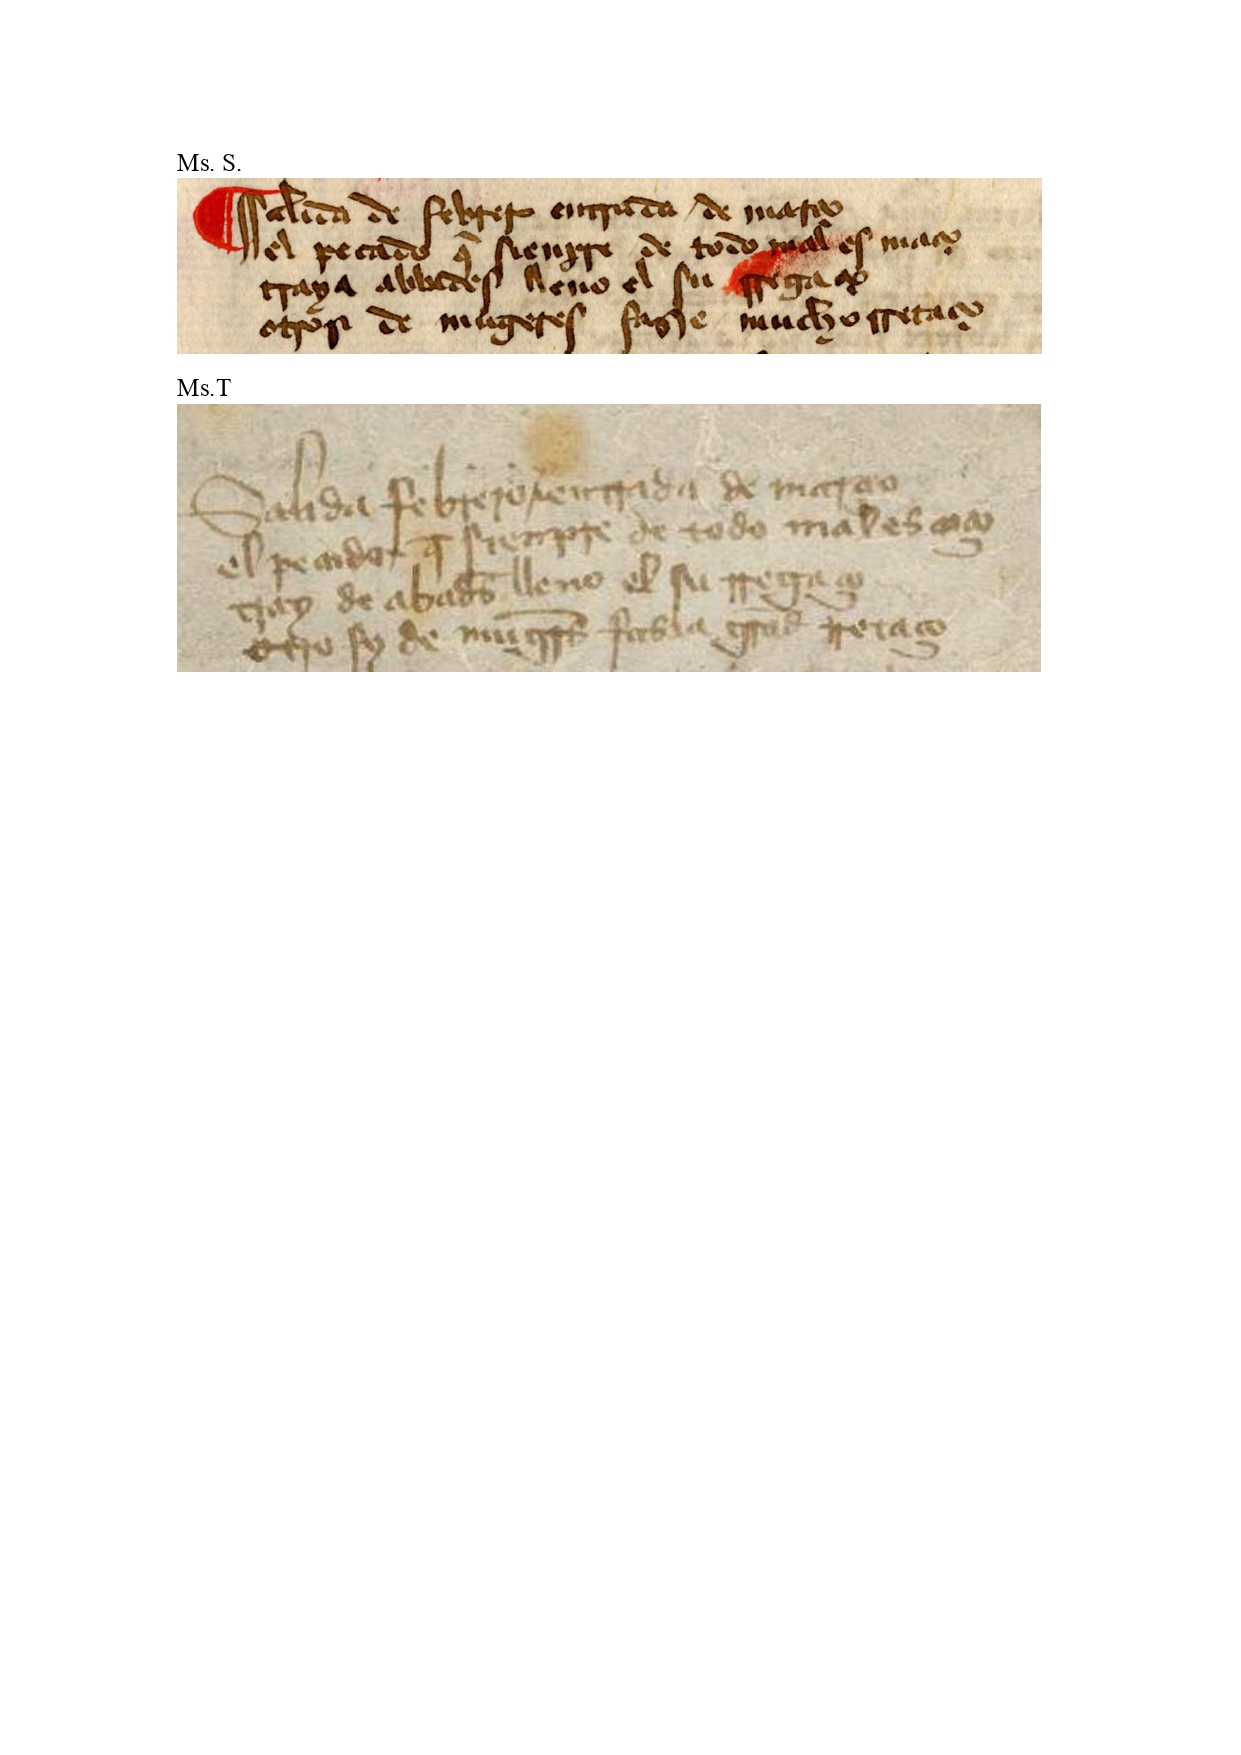 Ms. S.
Salida de febrero entrada de março
el pecado q̄ sienpre de todo mal es maço
traya abbades lleno el su rregaço
otrosi de mugeres fazie mucho rretaço
Ms.T
Salida febrero entrada de março
el pecador q̄ sienpre de todo mal es
tray de abads̄ lleno el su rregaço
otro sy de fazia grād rretaço